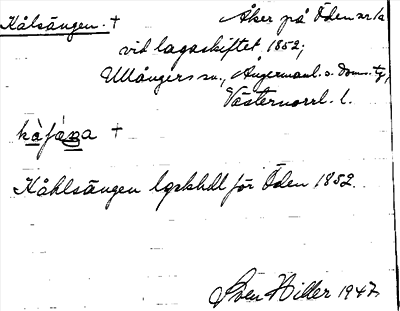 Kålsängen. † Åker på Öden nr 1a
vid lagaskiftet 1852;
Ullångers sn., Ångermanl. s. doms. tg,
Västernorrl. l.
†
Kåhlsängen lgskhdl för Öden 1852.
Sven Hiller 1947.